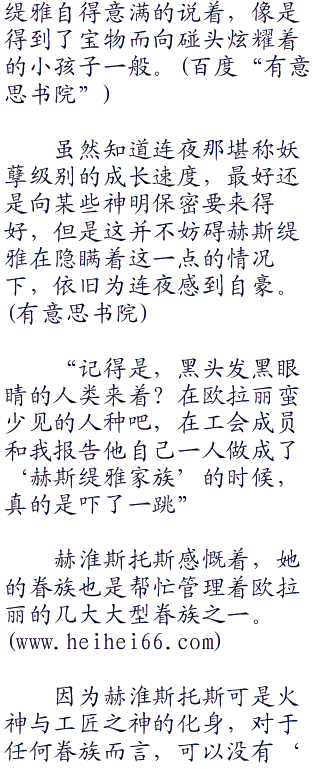 缇雅自得意满的说着，像是
得到了宝物而向碰头炫耀着
的小孩子一般。(百度“有意
思书院”)
虽然知道连夜那堪称妖
孽级别的成长速度，最好还
是向某些神明保密要来得
好，但是这并不妨碍赫斯缇
雅在隐瞒着这一点的情况
下，依旧为连夜感到自豪。
(有意思书院)
“记得是，黑头发黑眼
睛的人类来着？在欧拉丽蛮
少见的人种吧，在工会成员
和我报告他自己一人做成了
‘赫斯缇雅家族’的时候，
真的是吓了一跳”
赫淮斯托斯感慨着，她
的眷族也是帮忙管理着欧拉
丽的几大大型眷族之一。
(www.heihei66.com)
因为赫淮斯托斯可是火
神与工匠之神的化身，对于
任何眷族而言，可以没有‘